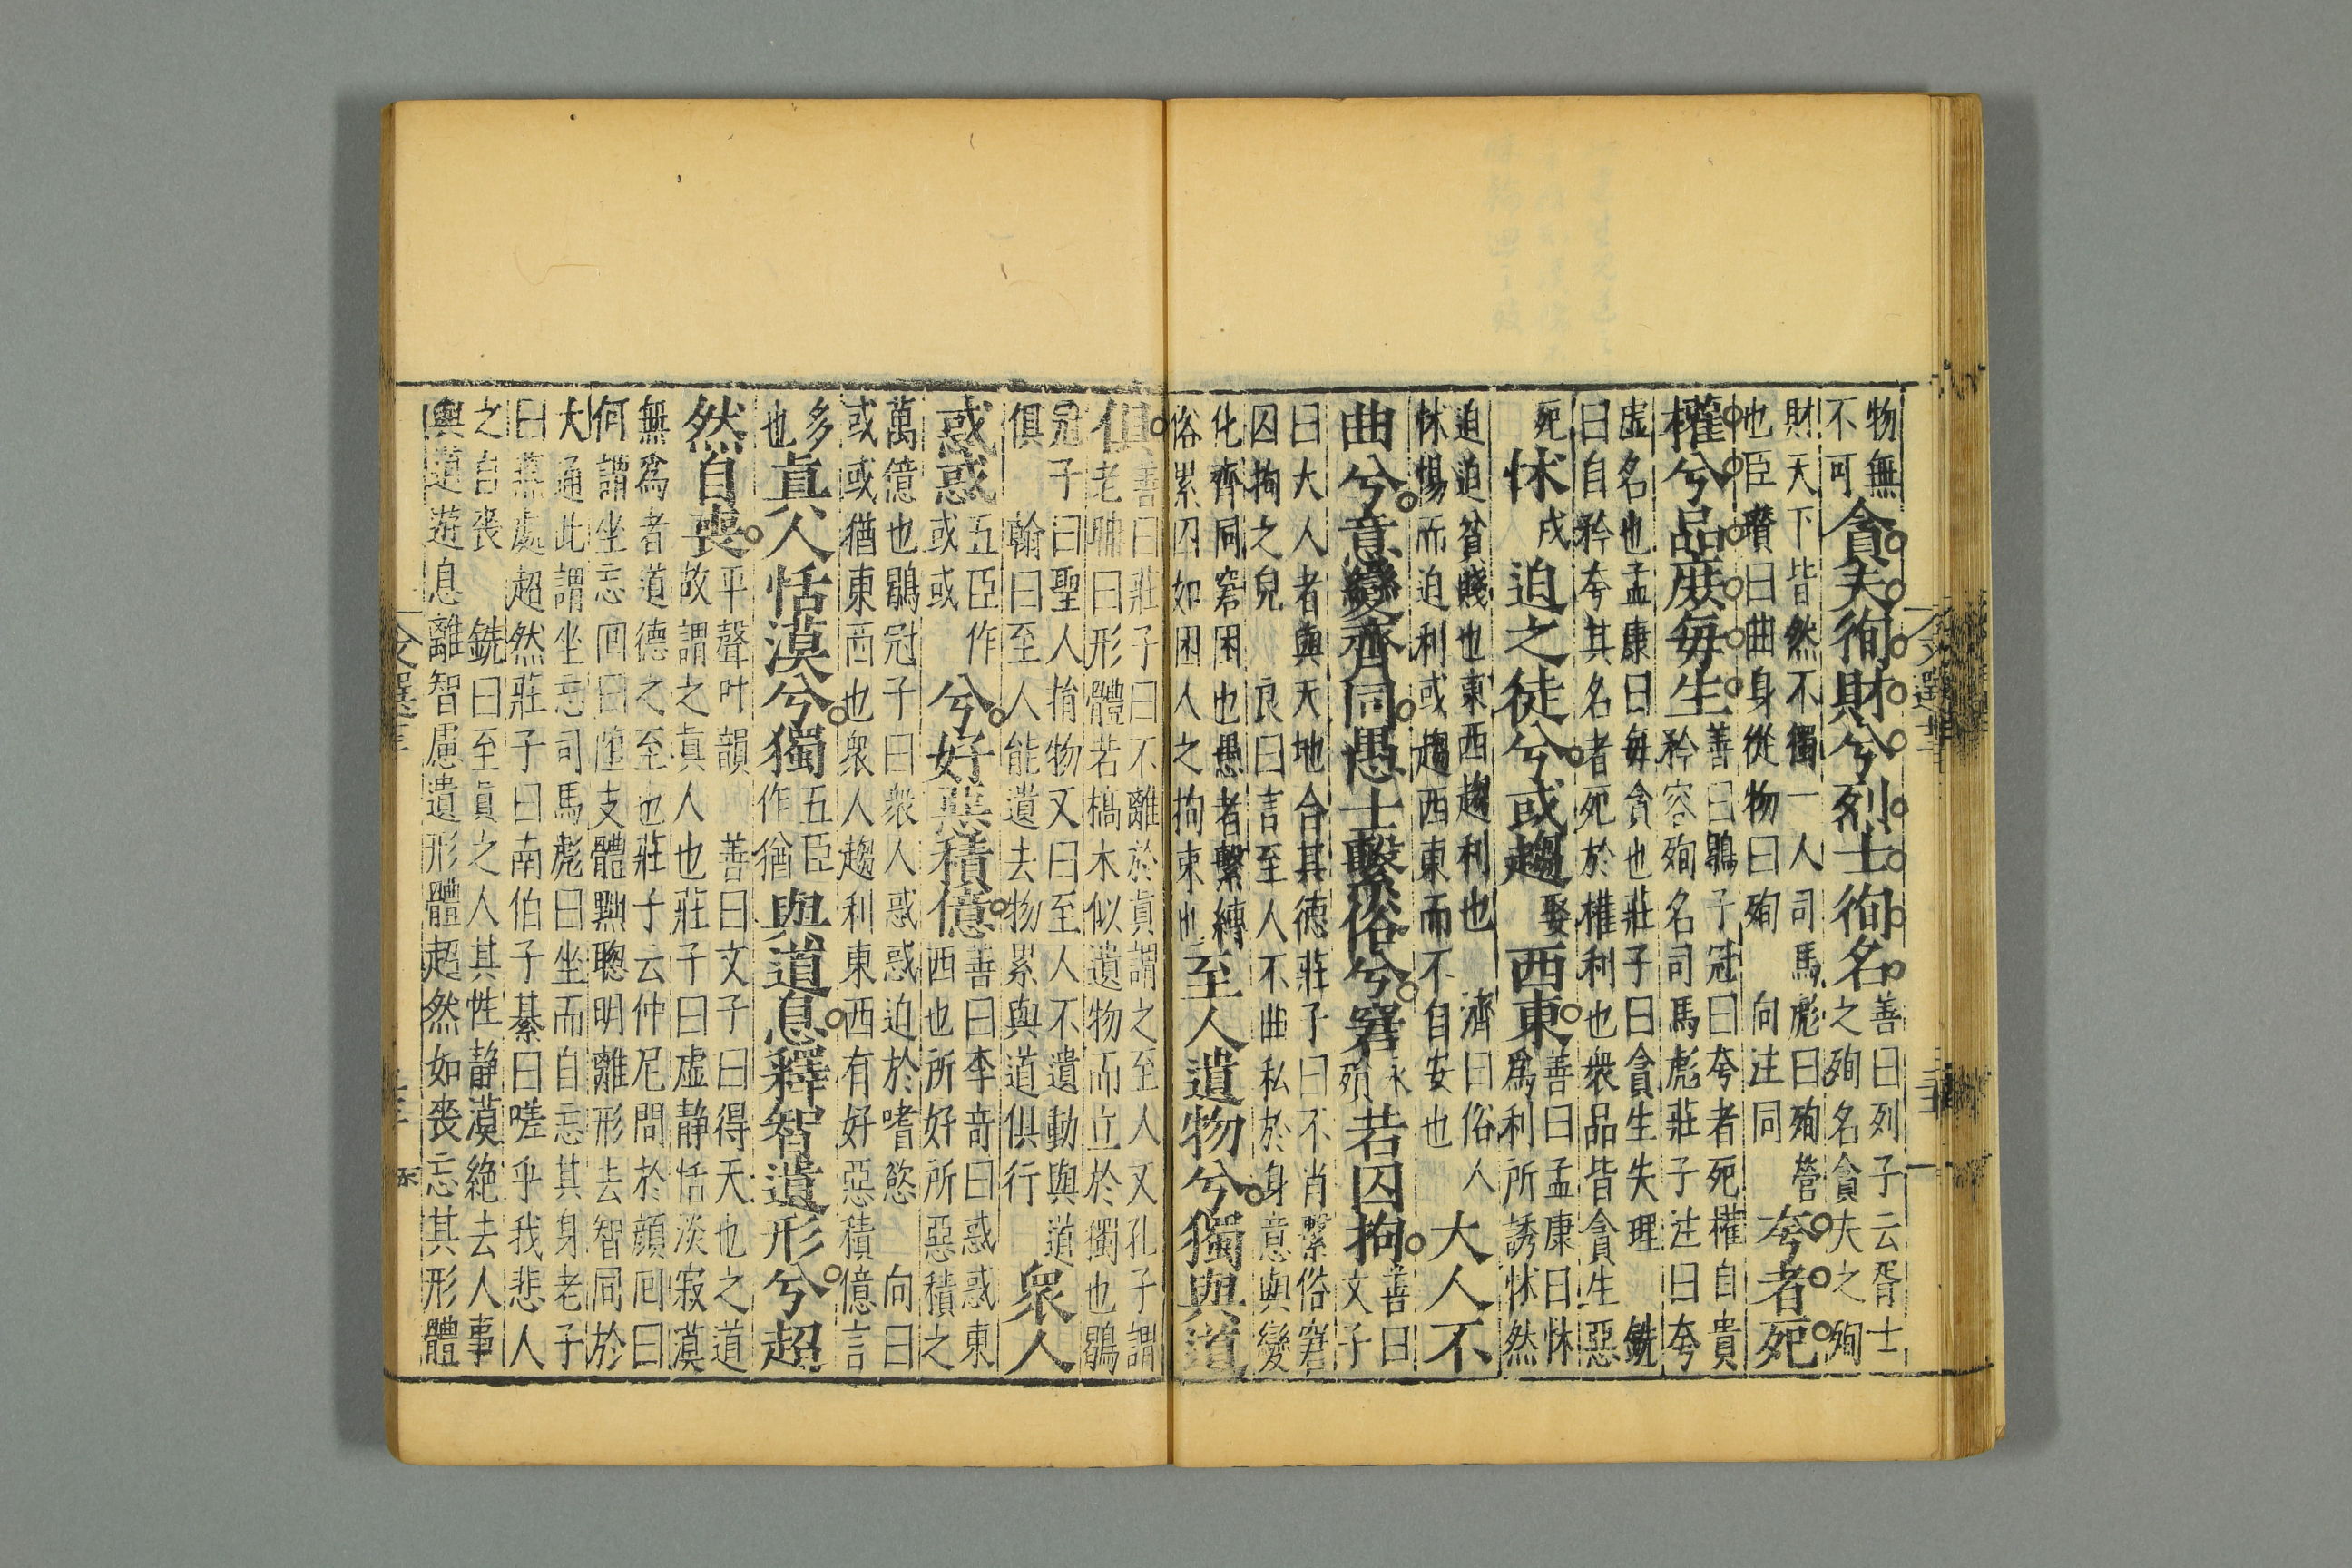 物無
不可
貪夫徇財兮列士徇名
善曰列子云胥士
之殉名貪夫之殉
財天下皆然不獨一人司馬彪曰殉營
也臣瓚曰曲身從物曰殉　向注同
夸者死
權兮品庶每生
善曰鶡子冠曰夸者死權自貴
矜容殉名司馬彪莊子注曰夸
虛名也孟康曰每貪也莊子曰貪生失理　銑
曰自矜夸其名者死於權利也衆品皆貪生惡
死
怵
戌
迫之徒兮或趨
娶
西東
善曰孟康曰怵
為利所誘怵然
迫迫貧賤也東西趨利也　濟曰俗人
怵惕而迫利或趨西東而不自安也
大人不
曲兮意變齊同愚士繫俗兮窘
永
殞
若囚拘
善曰
文子
曰大人者與天地合其德莊子曰不肖繫俗窘
囚拘之皃　良曰言至人不曲私於身意與變
化齊同窘困也愚者繫縛
俗累囚如困人之拘束也
至人遺物兮獨與道
俱
善曰莊子曰不離於真謂之至人又孔子謂
老聃曰形體若槁木似遺物而立於獨也鶡
冠子曰聖人捐物又曰至人不遺動與道
俱　翰曰至人能遺去物累與道俱行
衆人
惑惑
五臣作
或或
兮好惡積億
善曰李奇曰惑惑東
西也所好所惡積之
萬億也鶡冠子曰衆人惑惑迫於嗜慾　向曰
或或猶東西也衆人趨利東西有好惡積億言
多
也
真人恬漠兮獨
五臣
作猶
與道息釋智遺形兮超
然自喪
平聲叶韻　善曰文子曰得天也之道
故謂之真人也莊子曰虛静恬淡寂漠
無爲者道德之至也莊子云仲尼問於顏回曰
何謂坐忘回曰墮支體黜聰明離形去智同於
大通此謂坐忘司馬彪曰坐而自忘其身老子
曰燕處超然莊子曰南伯子綦曰嗟乎我悲人
之自喪　銑曰至真之人其性静漠絶去人事
與道遊息離智慮遺形體超然如喪忘其形體
文選